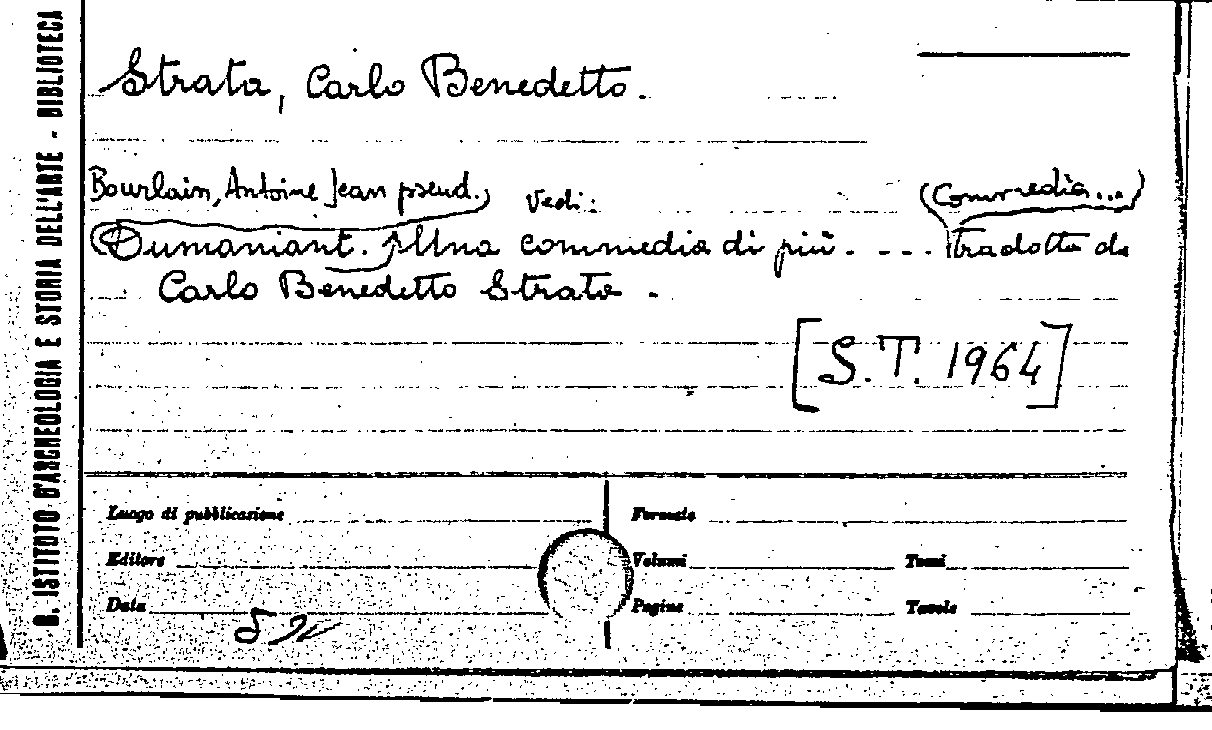 B. ISTITUTO D'ARCHEOLOGIA E STORIA DELL'ARTE - BIBLIOTECA
Strata, Carlo Benedetto.
Bourlain, Antoine Jean pseud.) Vedi: (Commedia...)
(Dumaniant. Una commedia di più. ... Tradotta da
Carlo Benedetto Strata.
[S.T. 1964]
Luogo di pubblicazione Formato
Editore Volumi Tomi
Data Pagine Tavole